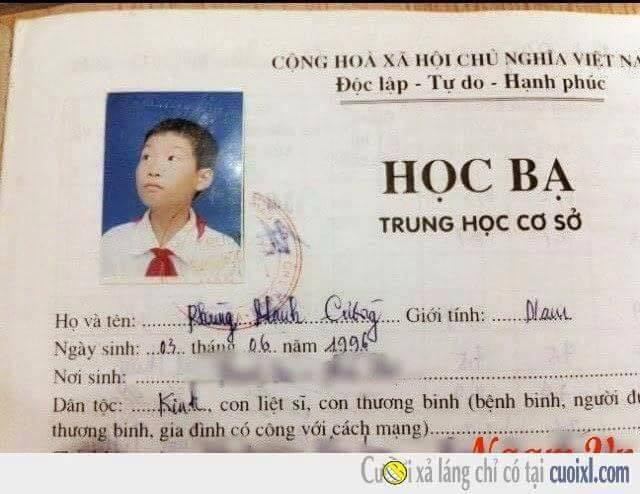 CỘNG HOÀ XÃ HỘI CHỦ NGHĨA VIỆT NA
Độc lập - Tự do - Hạnh phúc
HỌC BẠ
TRUNG HỌC CƠ SỞ
Họ và tên: Phùng Mạnh Cường Giới tính: Nam
Ngày sinh: 03 tháng 06 năm 1996
Nơi sinh:
Dân tộc: Kinh, con liệt sĩ, con thương binh (bệnh binh, người đư
thương binh, gia đình có công với cách mạng)
Ngam.Vn
Cười xả láng chỉ có tại cuoixl.com